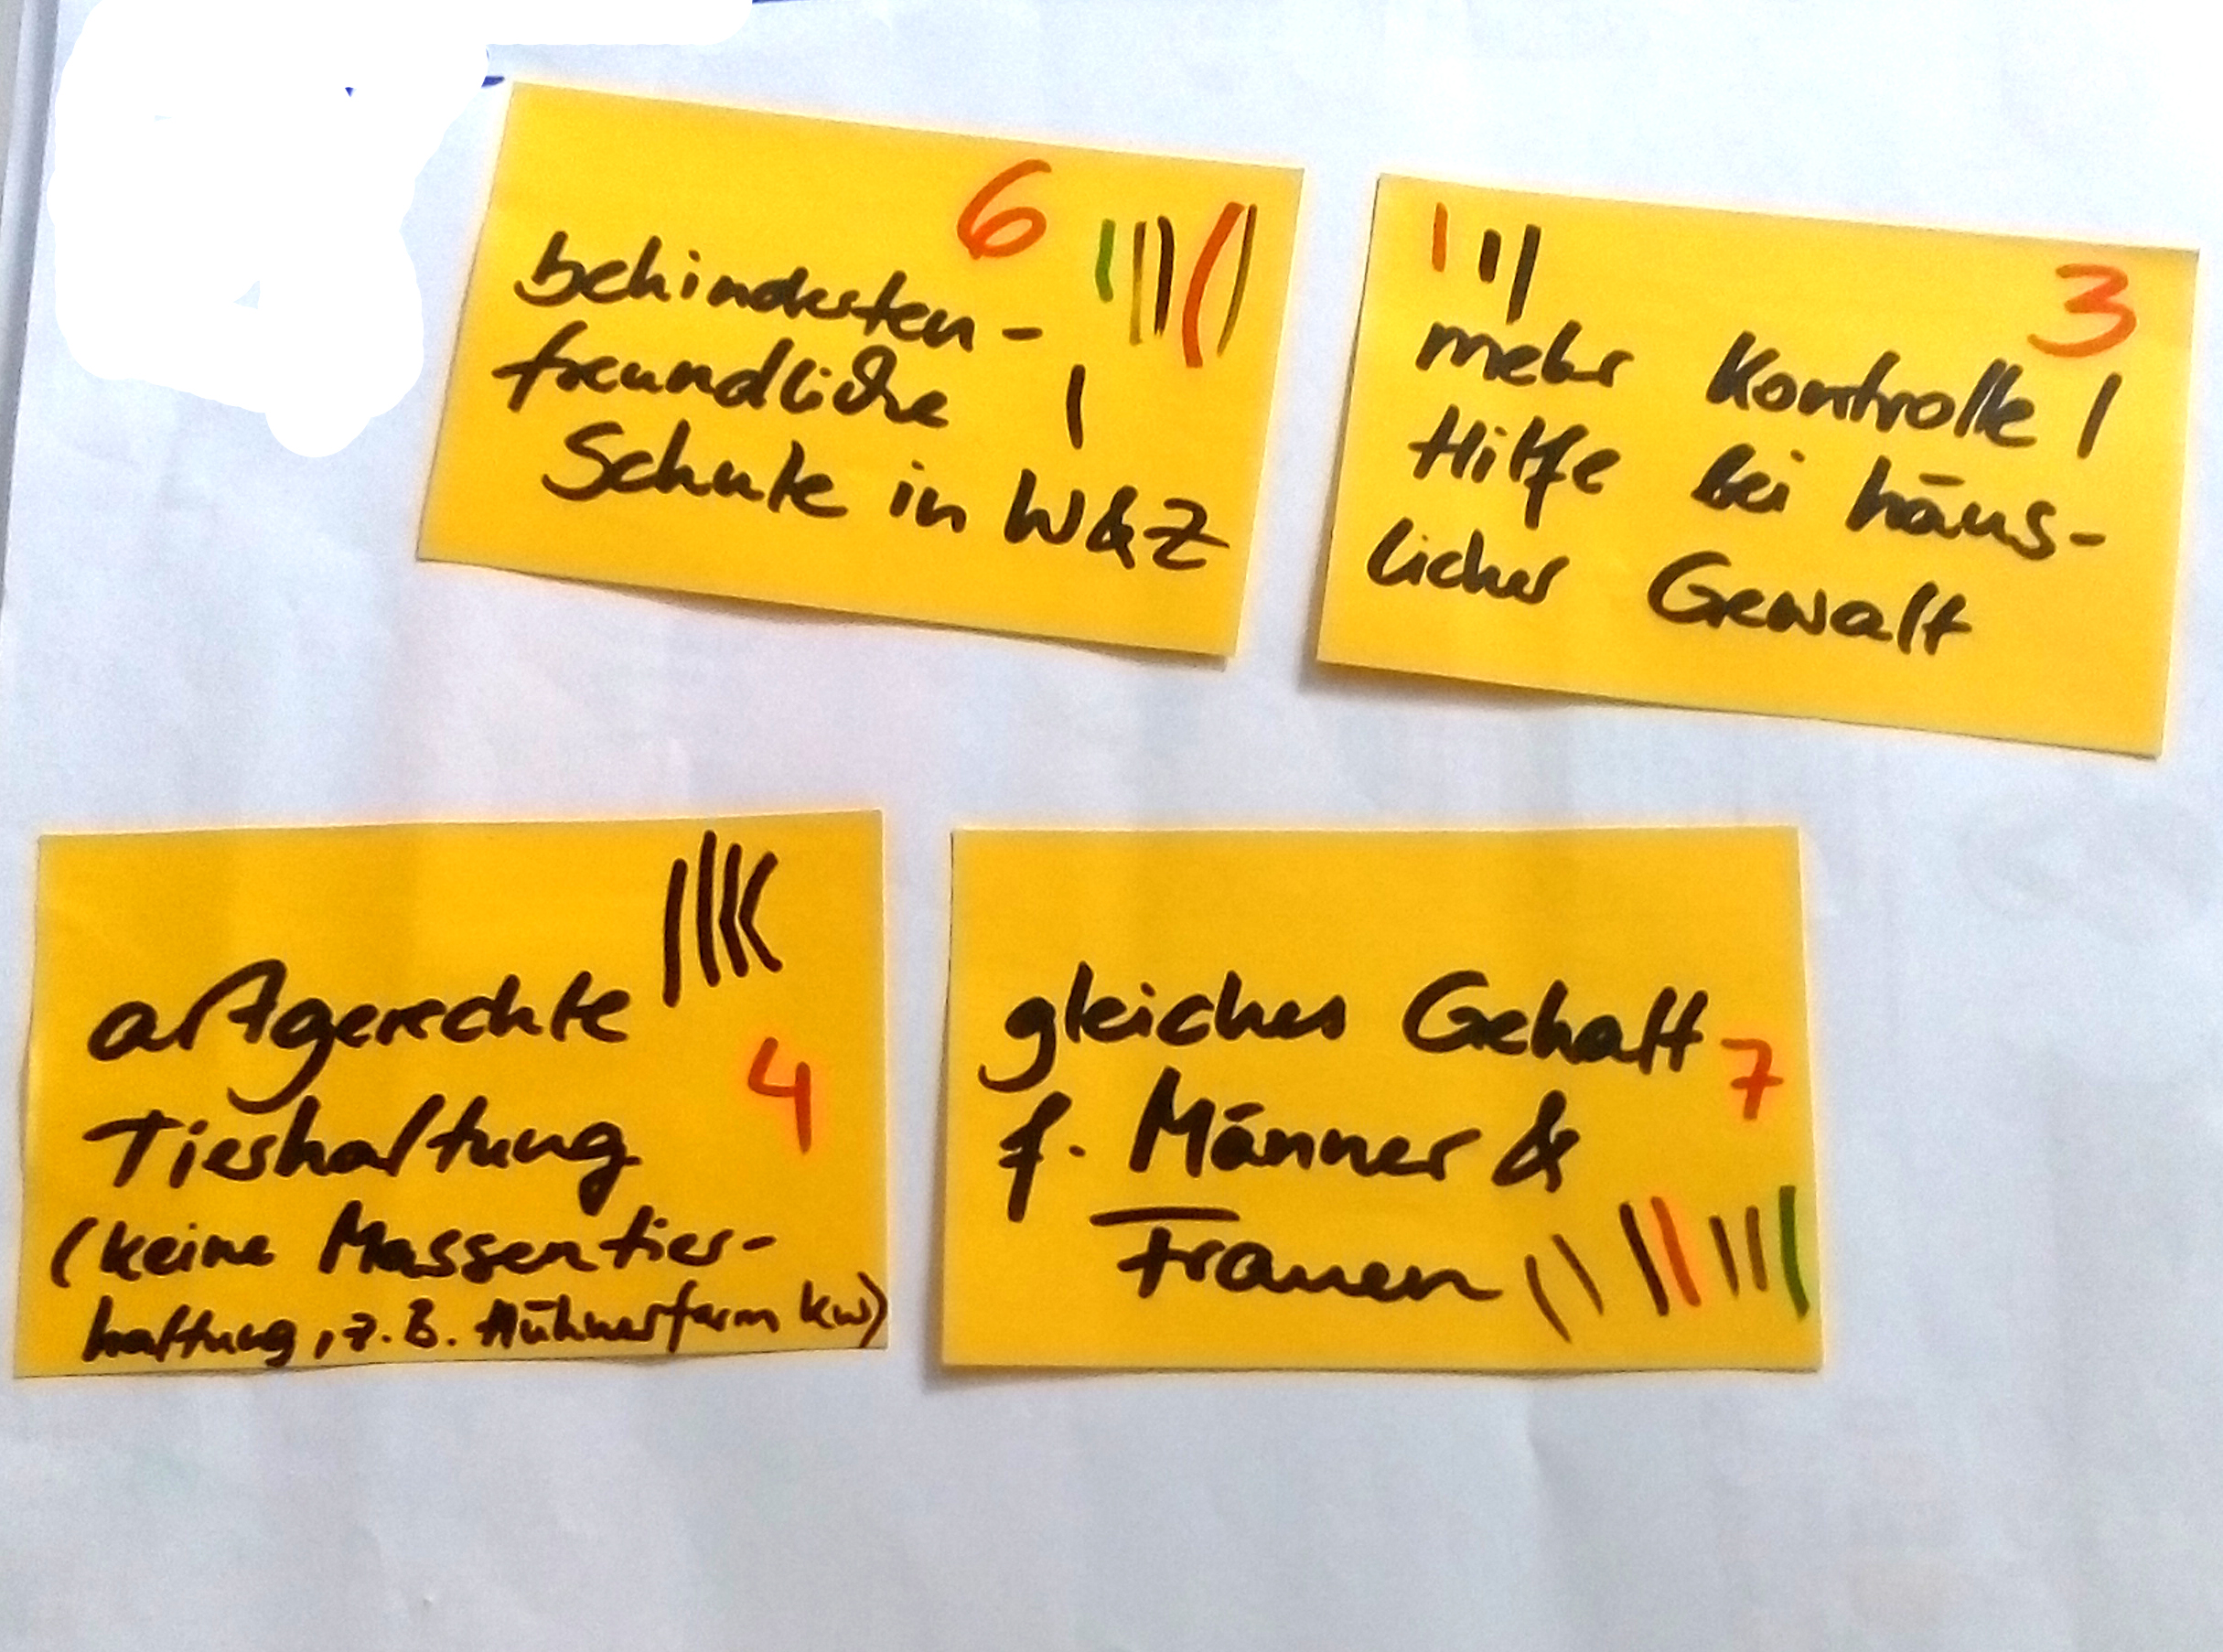 6
behinderten-
freundliche
Schule in W&Z
3
mehr Kontrolle /
Hilfe bei häus-
licher Gewalt
artgerechte
4
Tierhaltung
(keine Massentier-
haltung, z.B. Hühnerfarm KW)
gleiches Gehalt
7
f. Männer &
Frauen